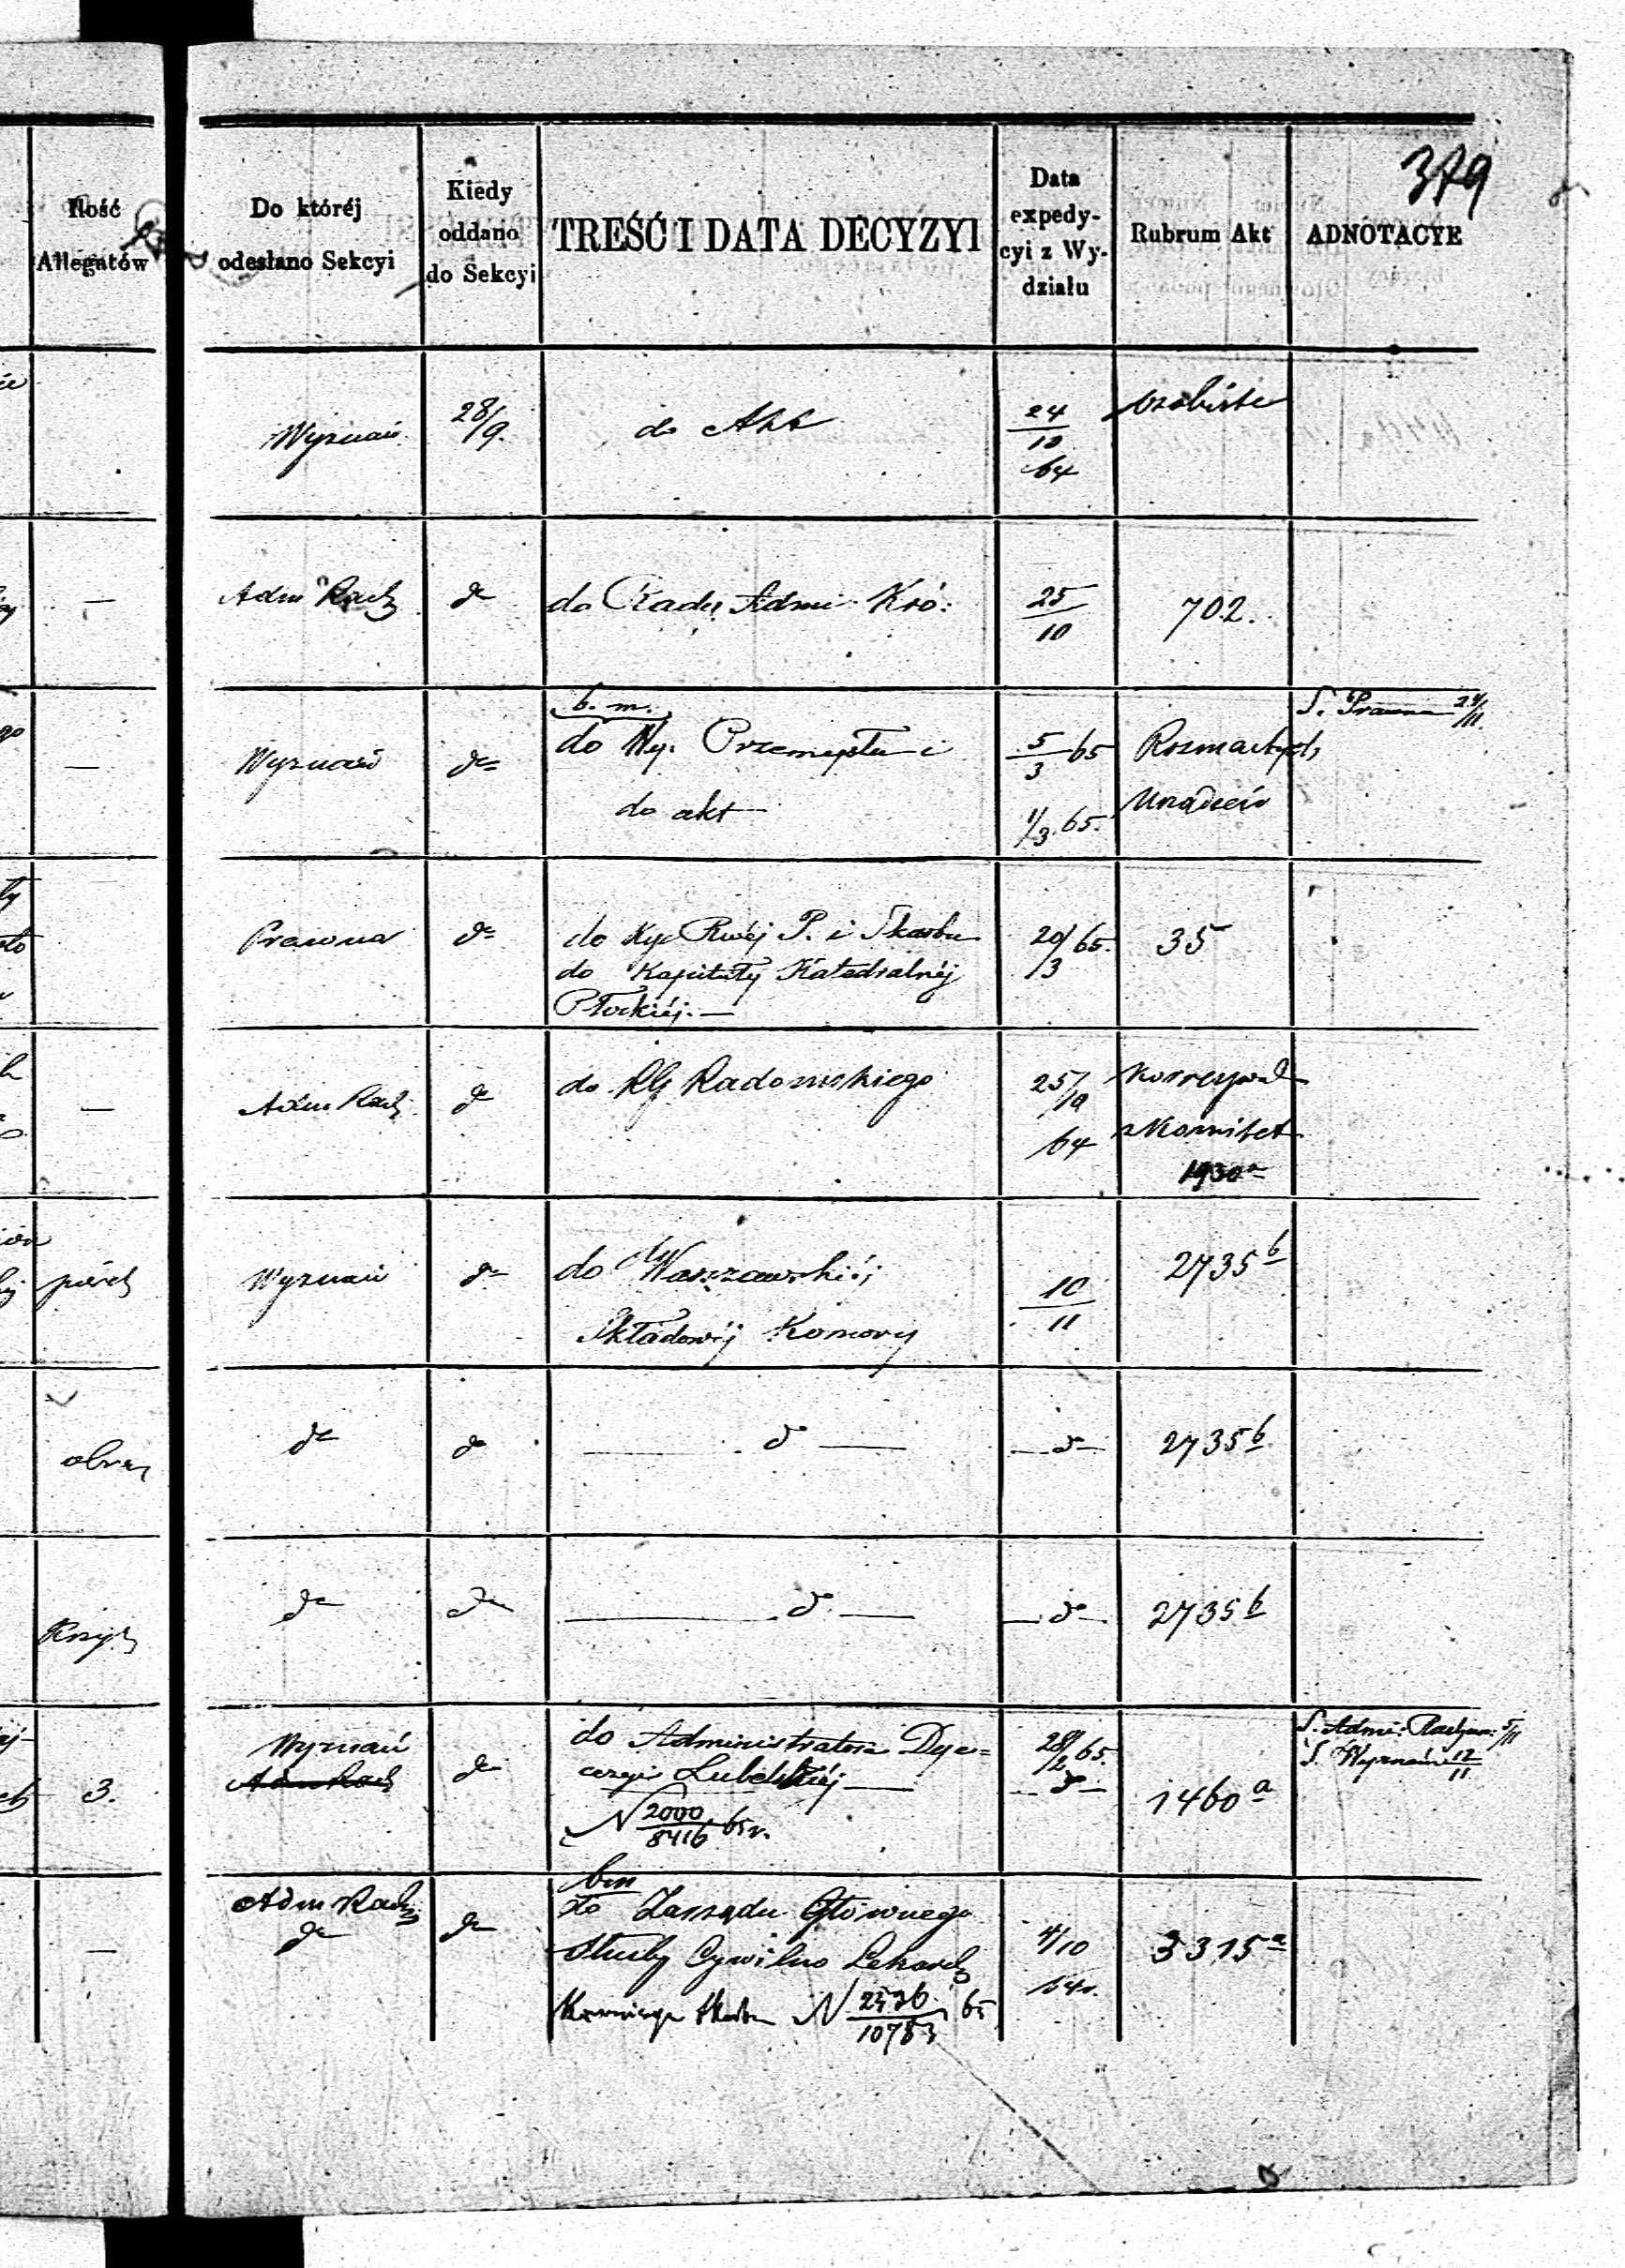 379
Ilość
Allegatów
Do któréj
odesłano Sekcyi
Kiedy
oddano
do Sekcyi
TREŚĆ I DATA DECYZYI
Data
expedy-
cyi z Wy-
działu
Rubrum Akt
ADNOTACYE
Wyznań
28/9.
do Akt
24
10
64
osobiste
—
Adm Rach
do
do Rady Admi. Kró:
25
10
702.
—
Wyznań
do
b. m.
do Wy. Przemysłu i
do akt
5/3 65
1/3 65.
Rozmaitych
S. Prawna 24/11
—
Prawna
do
do Wyd Rwéj P. i Skarbu
do Kapituły Katedralnéj
Płockiéj.—
20/3 65.
35
—
Adm Rach
do
do RG Radomskiego
25/10
64
Korrespond
z Komitet
1930a
Wyznań
do
do Warszawskiéj
Składowéj Komory
10
11
2735b
obraz
do
do
— do —
— do —
2735b
do
do
— do —
— do —
2735b
3.
Wyznań
Adm Rach
do
do Administratora Dye=
cezyi Lubelskiéj —
N 2000/8416 65 r.
28/2 65.
— do —
1460a
S. Admi: Rachun: 5/11
S. Wyznań 12/11
—
Adm Rach
do
do
bm
do Zarządu Głównego
Służby Cywilno Lekarsk
N 2536/10783 65
4/10
64 r.
3315a